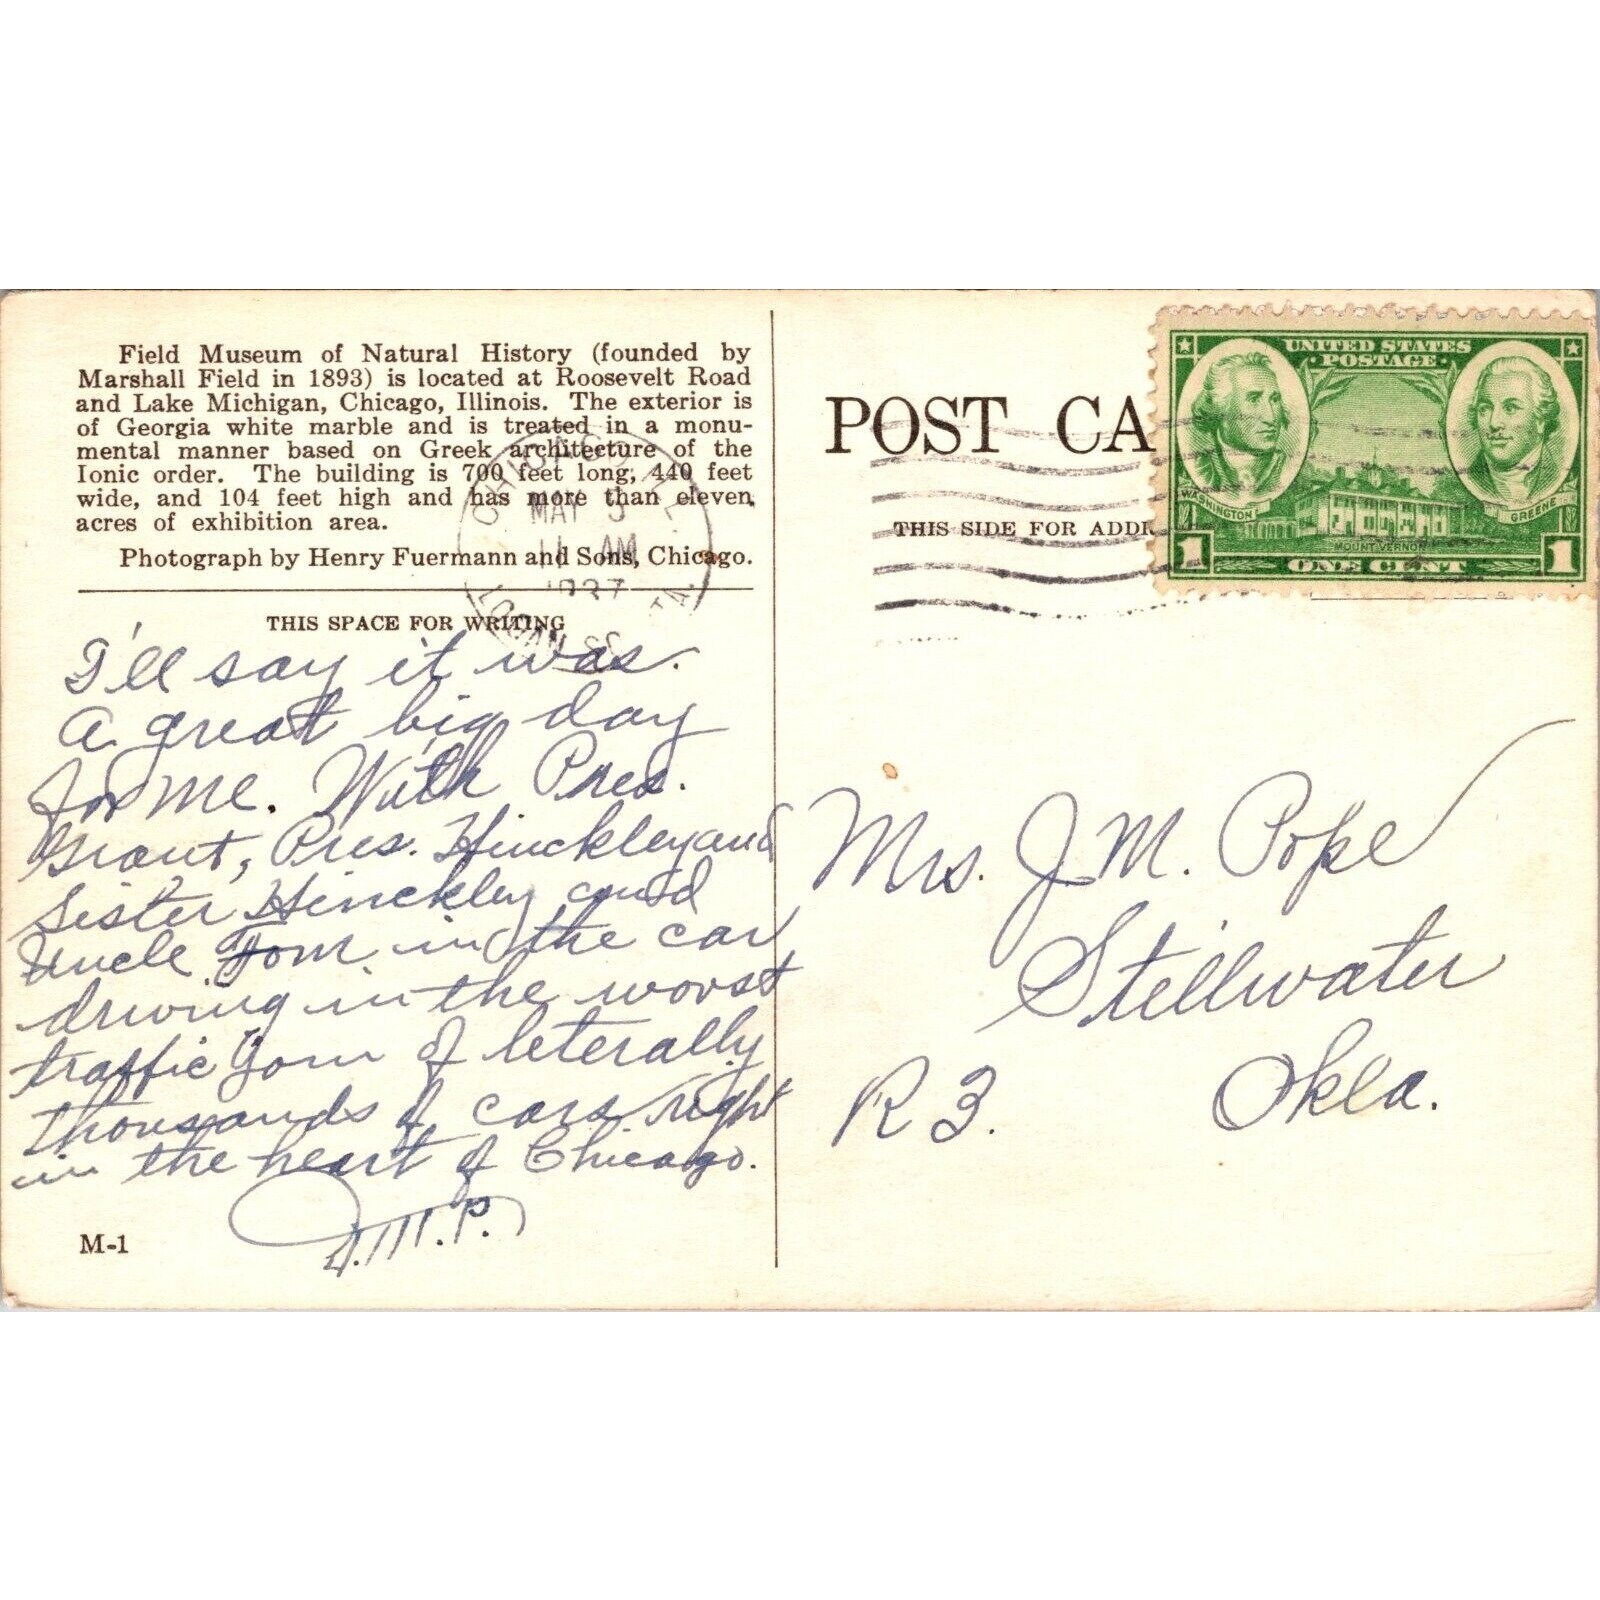 Field Museum of Natural History (founded by
Marshall Field in 1893) is located at Roosevelt Road
and Lake Michigan, Chicago, Illinois. The exterior is
of Georgia white marble and is treated in a monu-
mental manner based on Greek architecture of the
Ionic order. The building is 700 feet long, 440 feet
wide, and 104 feet high and has more than eleven
acres of exhibition area.
Photograph by Henry Fuermann and Sons, Chicago.
THIS SPACE FOR WRITING
I'll say it was.
A great big day
for me. With Pres.
Grant, Pres. Hinckley and
Sister Hinckley and
Uncle Tom in the car,
driving in the worst
traffic jom of leterally
thousands of cars right
in the heart of Chicago.
J.M.P.
M-1
CHICAGO, ILL.
MAY 3
11 AM
1937
LOGAN SQ. STA.
POST CA
THIS SIDE FOR ADDR
UNITED STATES
POSTAGE
WASHINGTON
GREENE
MOUNT VERNON
1 ONE CENT 1
Mrs. J. M. Pope
Stillwater
R 3. Okla.